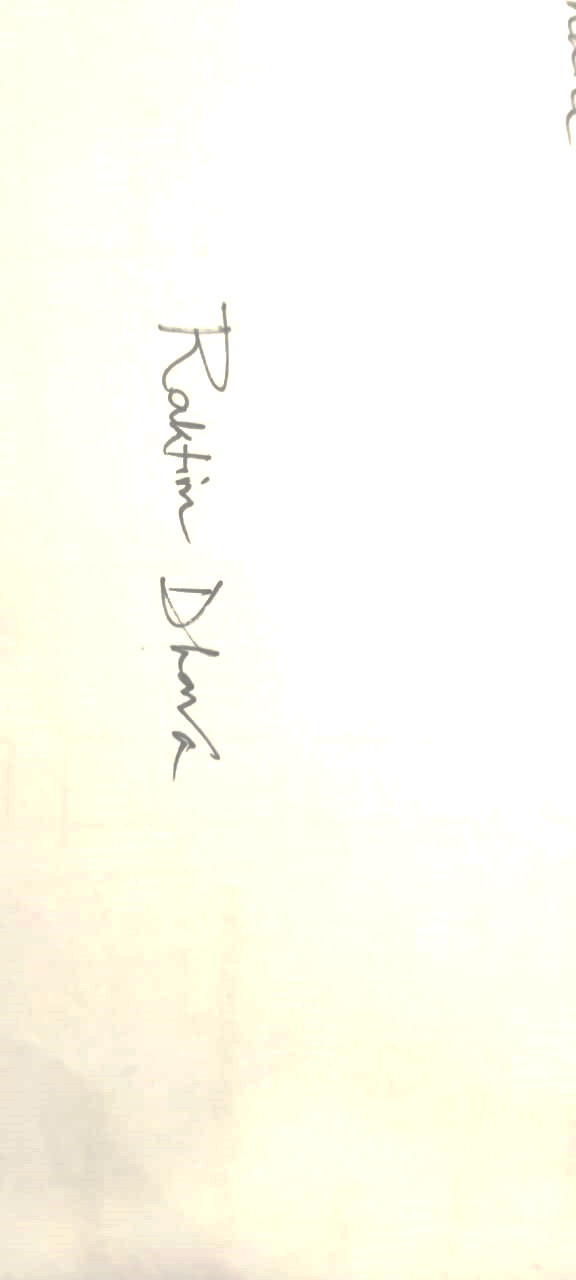 Raktim Dhara